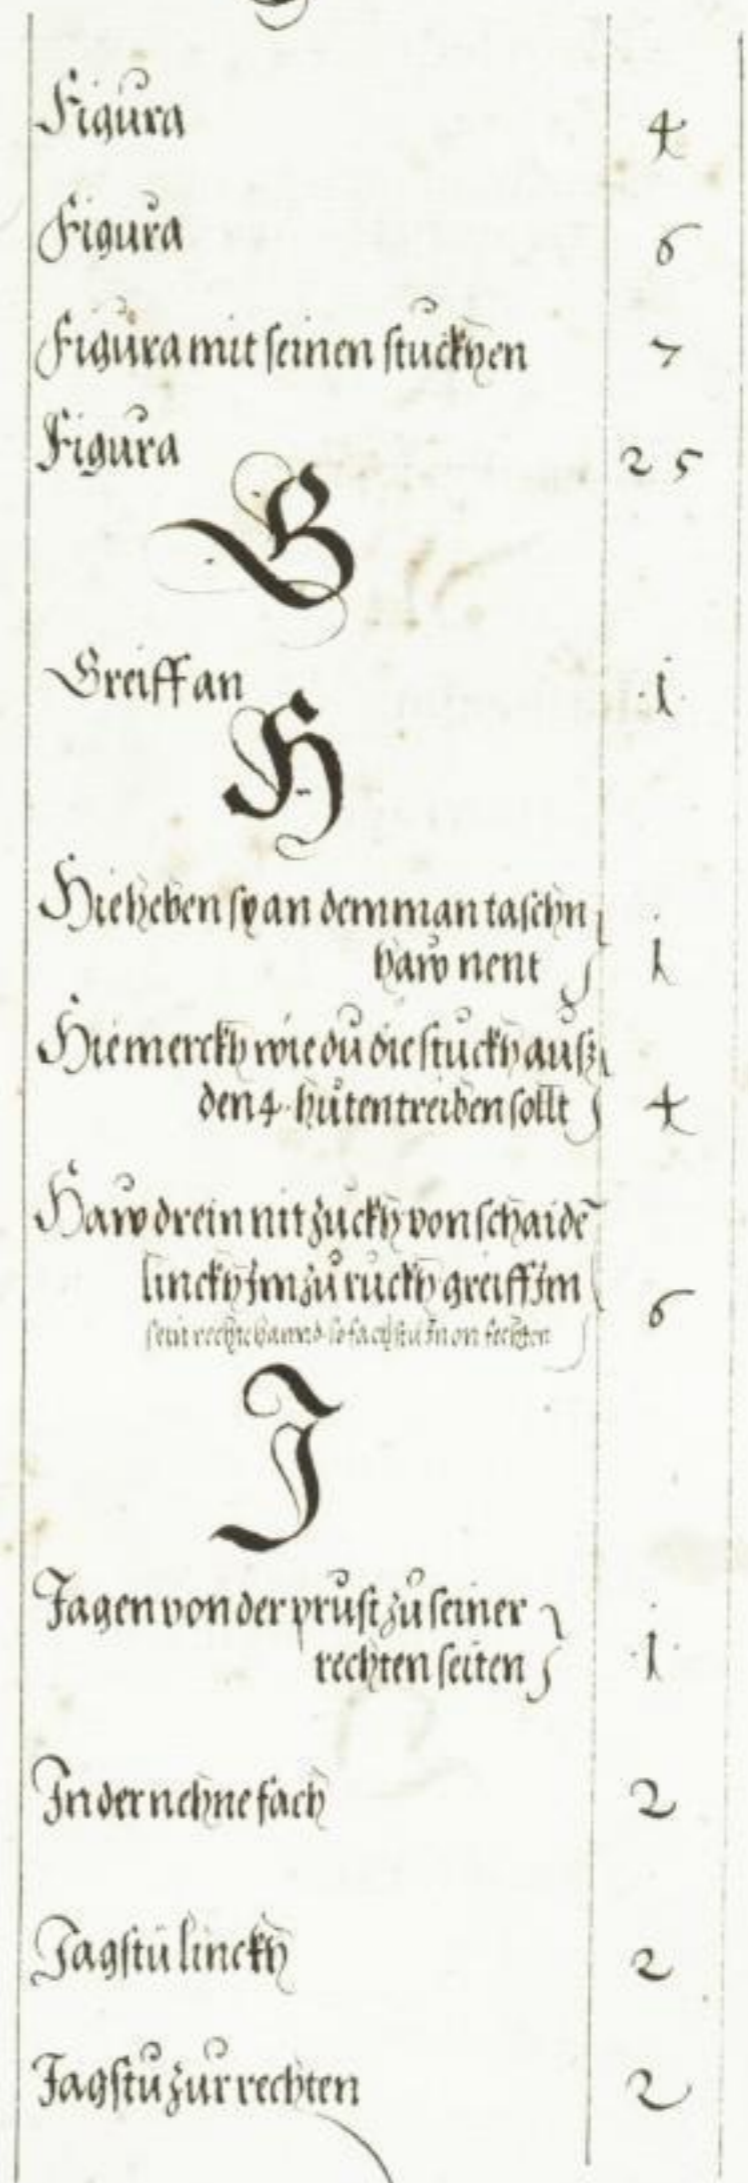 Figura 4
Figura 6
Figura mit seinen stuckhen 7
Figura 25
G
Greiff an ·i·
H
Hie heben sy an dem man taschn
haw nent i
Hie merckh wie du die stuckh ausz
den 4 hůten treiben sollt 4
Haw drein nit zuckh von schaidē
linckh Im zu ruckh greiff Im 6
sein rechte hannd so fachstu In on fechten
J
Jagen von der prust zu seiner
rechten seiten ·i·
In der nehne fach 2
Jagstu linckh 2
Jagstu zur rechten 2